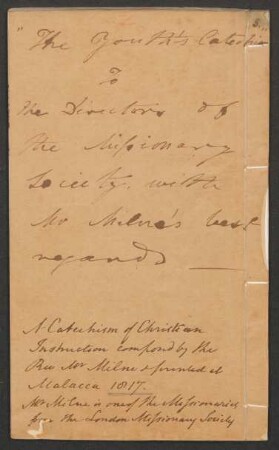 "The Youth's Catechism
To
the Directors of
the Missionary
Society, with
Mr Milne's best
regards —
A Catechism of Christian
Instruction composed by the
Revd. Mr Milne & printed at
Malacca 1817.
Mr Milne is one of the Missionaries
from the London Missionary Society